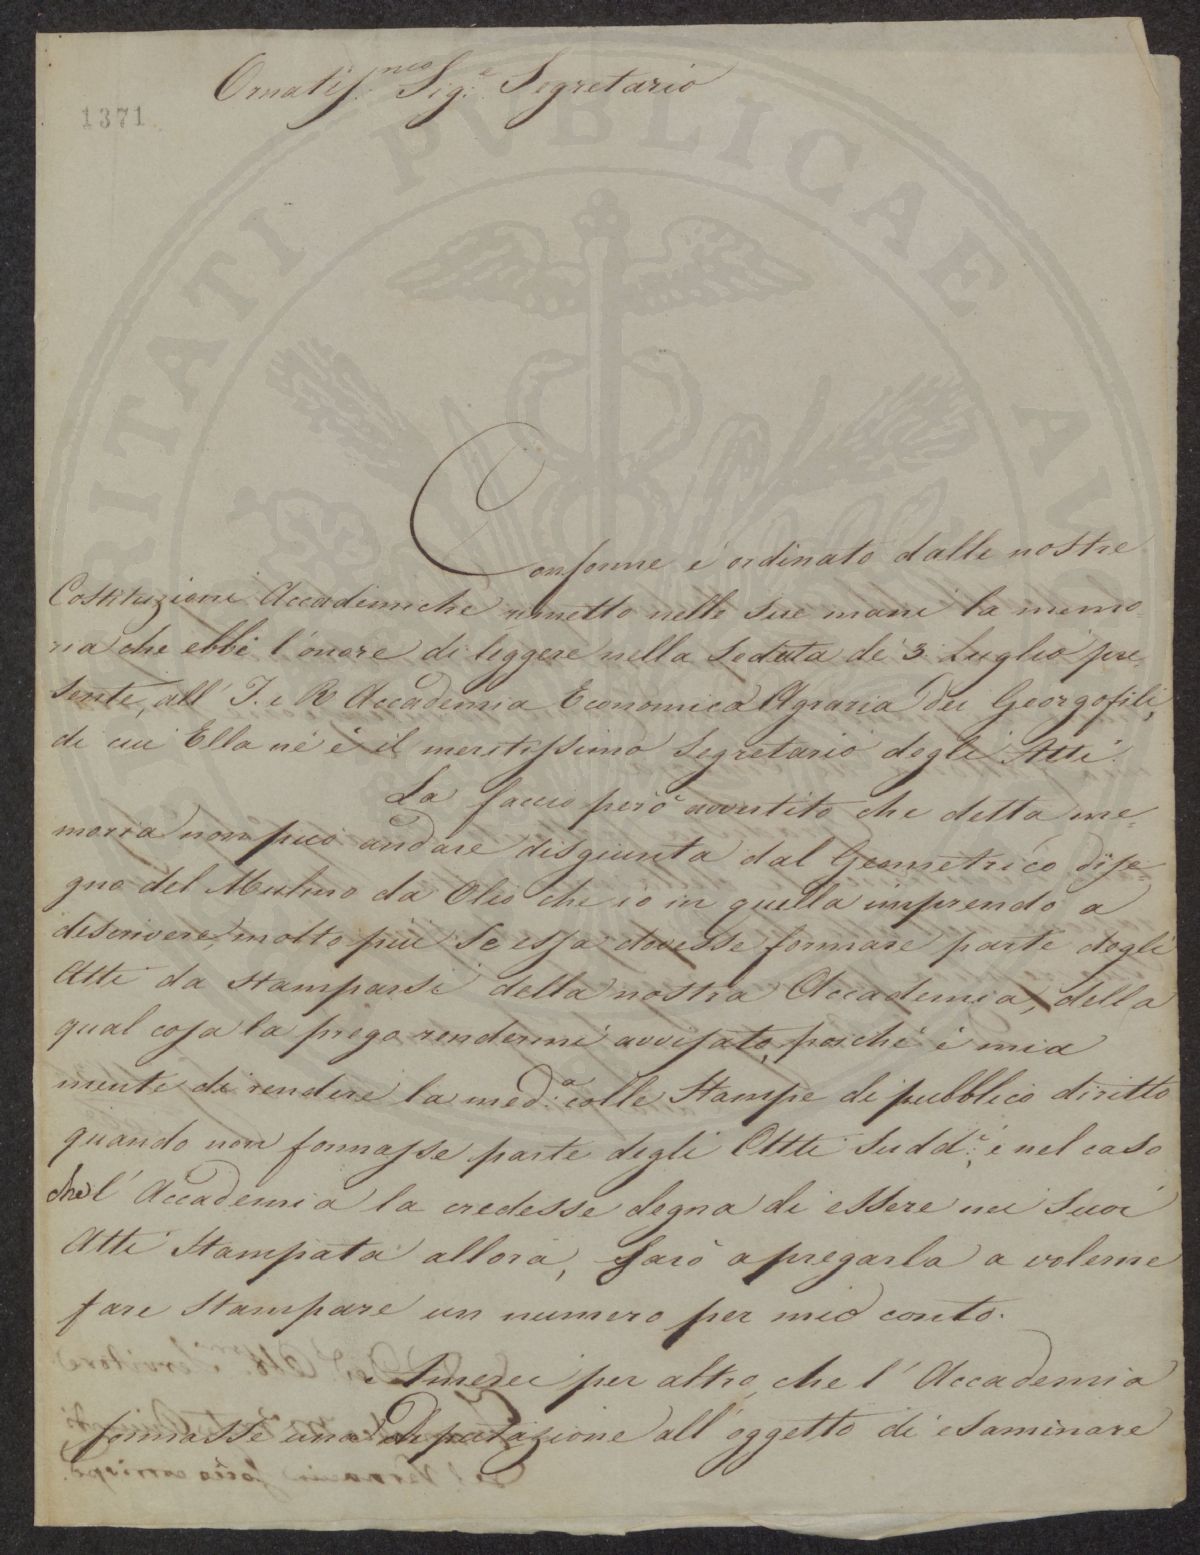 Ornatiss.mo Sig.e Segretario
1371
PVBLICAE
Conforme è ordinato dalle nostre
Costituzioni Accademiche rimetto nelle Sue mani la memo-
ria che ebbi l'onore di leggere nella Seduta de' 3 Luglio pre-
sente, all' I. e R. Accademia Economica Agraria dei Georgofili,
di cui Ella né è il meritissimo Segretario degli Atti.
La faccio però avvertito che detta me-
moria non può andare disgiunta dal Geometrico dise-
gno del Mulino da Olio che io in quella imprendo a
descrivere, molto più Se essa dovesse formare parte degli
Atti da Stamparsi della nostra Accademia, della
qual cosa la prego rendermi avvisato, poiché è mia
mente di rendere la med.a colle Stampe di pubblico diritto
quando non formasse parte degli Atti Sudd.i, e nel caso
che l'Accademia la credesse degna di essere nei Suoi
Atti Stampata allora, Sarò a pregarla a volerne
fare Stampare un numero per mio conto.
Amerei per altro che l'Accademia
formasse una Deputazione all'oggetto di esaminare